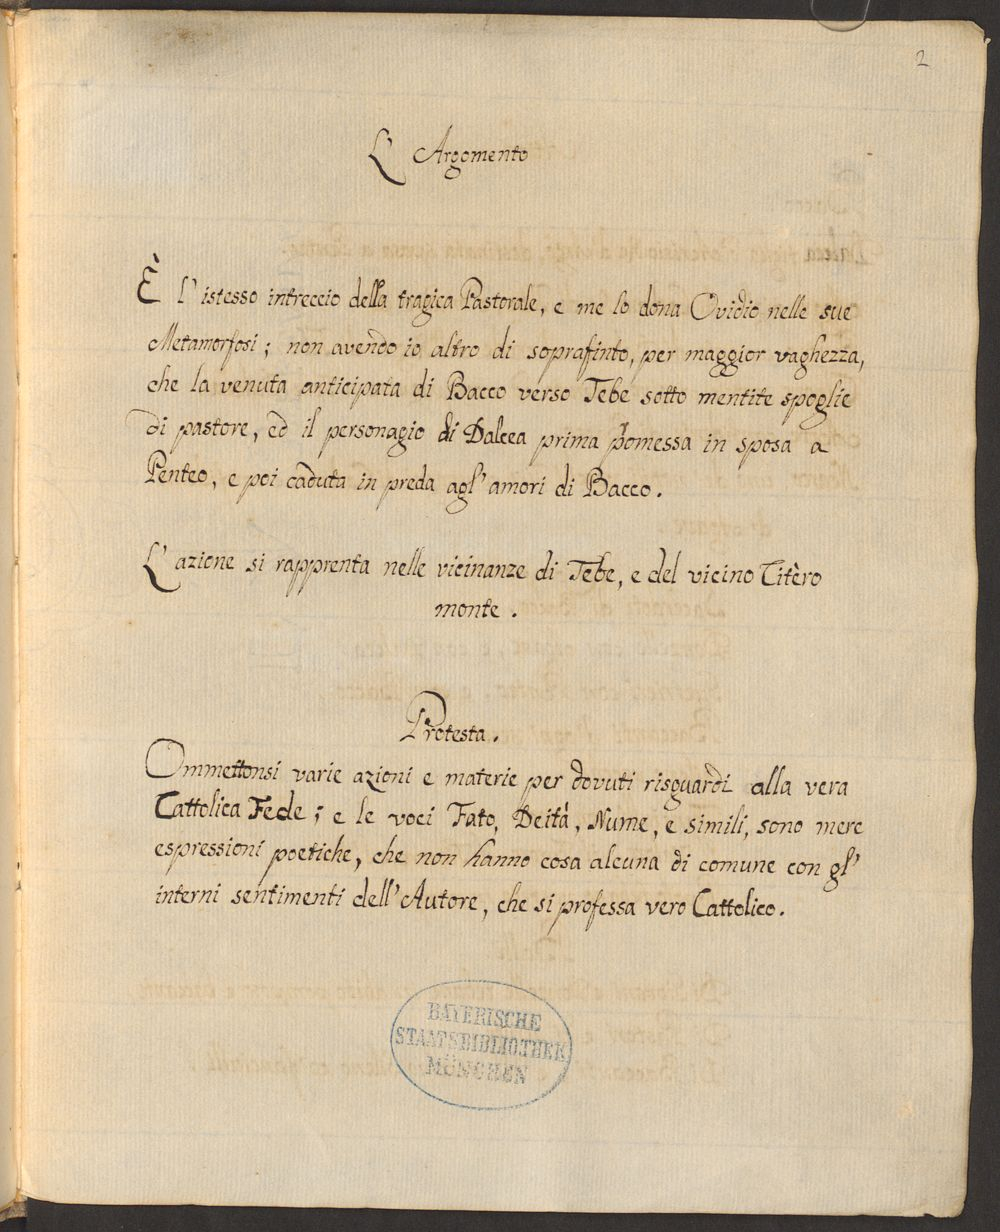 2
L' Argomento
È l' istesso intreccio della tragica Pastorale, e me lo dona Ovidio nelle sue
Metamorfosi; non avendo io altro di soprafinto, per maggior vaghezza,
che la venuta anticipata di Bacco verso Tebe sotto mentite spoglie
di pastore, ed il personagio di Dalcea prima promessa in sposa a
Penteo, e poi caduta in preda agl' amori di Bacco.
L' azione si rapprenta nelle vicinanze di Tebe, e del vicino Titèro
monte.
Protesta.
Ommettonsi varie azioni e materie per dovuti risguardi alla vera
Cattolica Fede; e le voci Fato, Deità, Nume, e simili, sono mere
espressioni poetiche, che non hanno cosa alcuna di comune con gl'
interni sentimenti dell' Autore, che si professa vero Cattolico.
BAYERISCHE
STAATSBIBLIOTHEK
MÜNCHEN